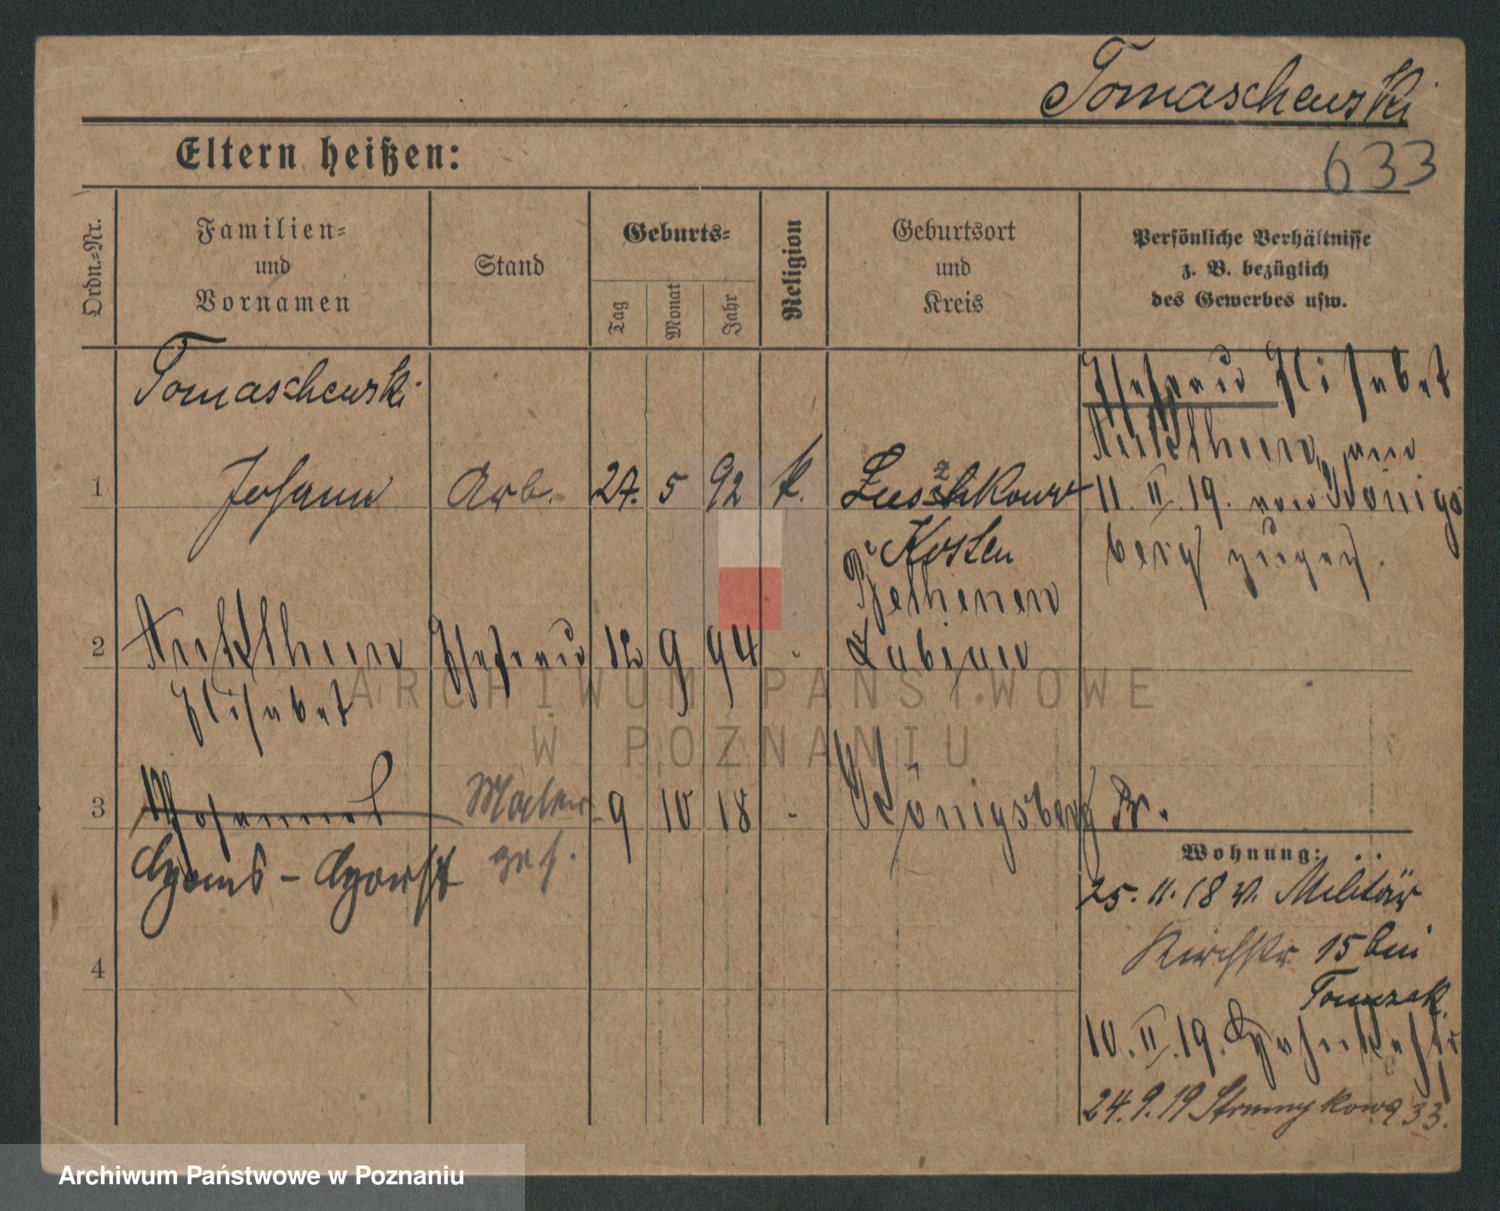 Tomaschewski
633
Eltern heißen:
Ordn.-Nr.
Familien-
und
Vornamen
Stand
Geburts-
Tag
Monat
Jahr
Religion
Geburtsort
und
Kreis
Persönliche Verhältnisse
z. B. bezüglich
des Gewerbes usw.
Tomaschewski
1 Johann Arb. 27. 5 92 k.
Kosten
Ehefrau Elisabet
am
11. II. 19. von Königs
berg zugez.
2 Ehefrau 12 9 94
Elisabet
Labiau
3 Maler 9 10 18 - Königsberg Pr.
ges.
4
Wohnung:
25. 11. 18 v. Militär
Kirchstr. 15 bei
Tomczak
10. II. 19.
24. 9. 19 33.
ARCHIWUM PAŃSTWOWE
W POZNANIU
Archiwum Państwowe w Poznaniu